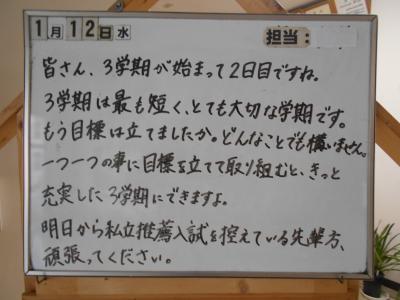 1月12日水 担当:
皆さん、3学期が始まって2日目ですね。
3学期は最も短く、とても大切な学期です。
もう目標は立てましたか。どんなことでも構いません。
一つ一つの事に目標を立てて取り組むと、きっと
充実した3学期にできますよ。
明日から私立推薦入試を控えている先輩方、
頑張ってください。